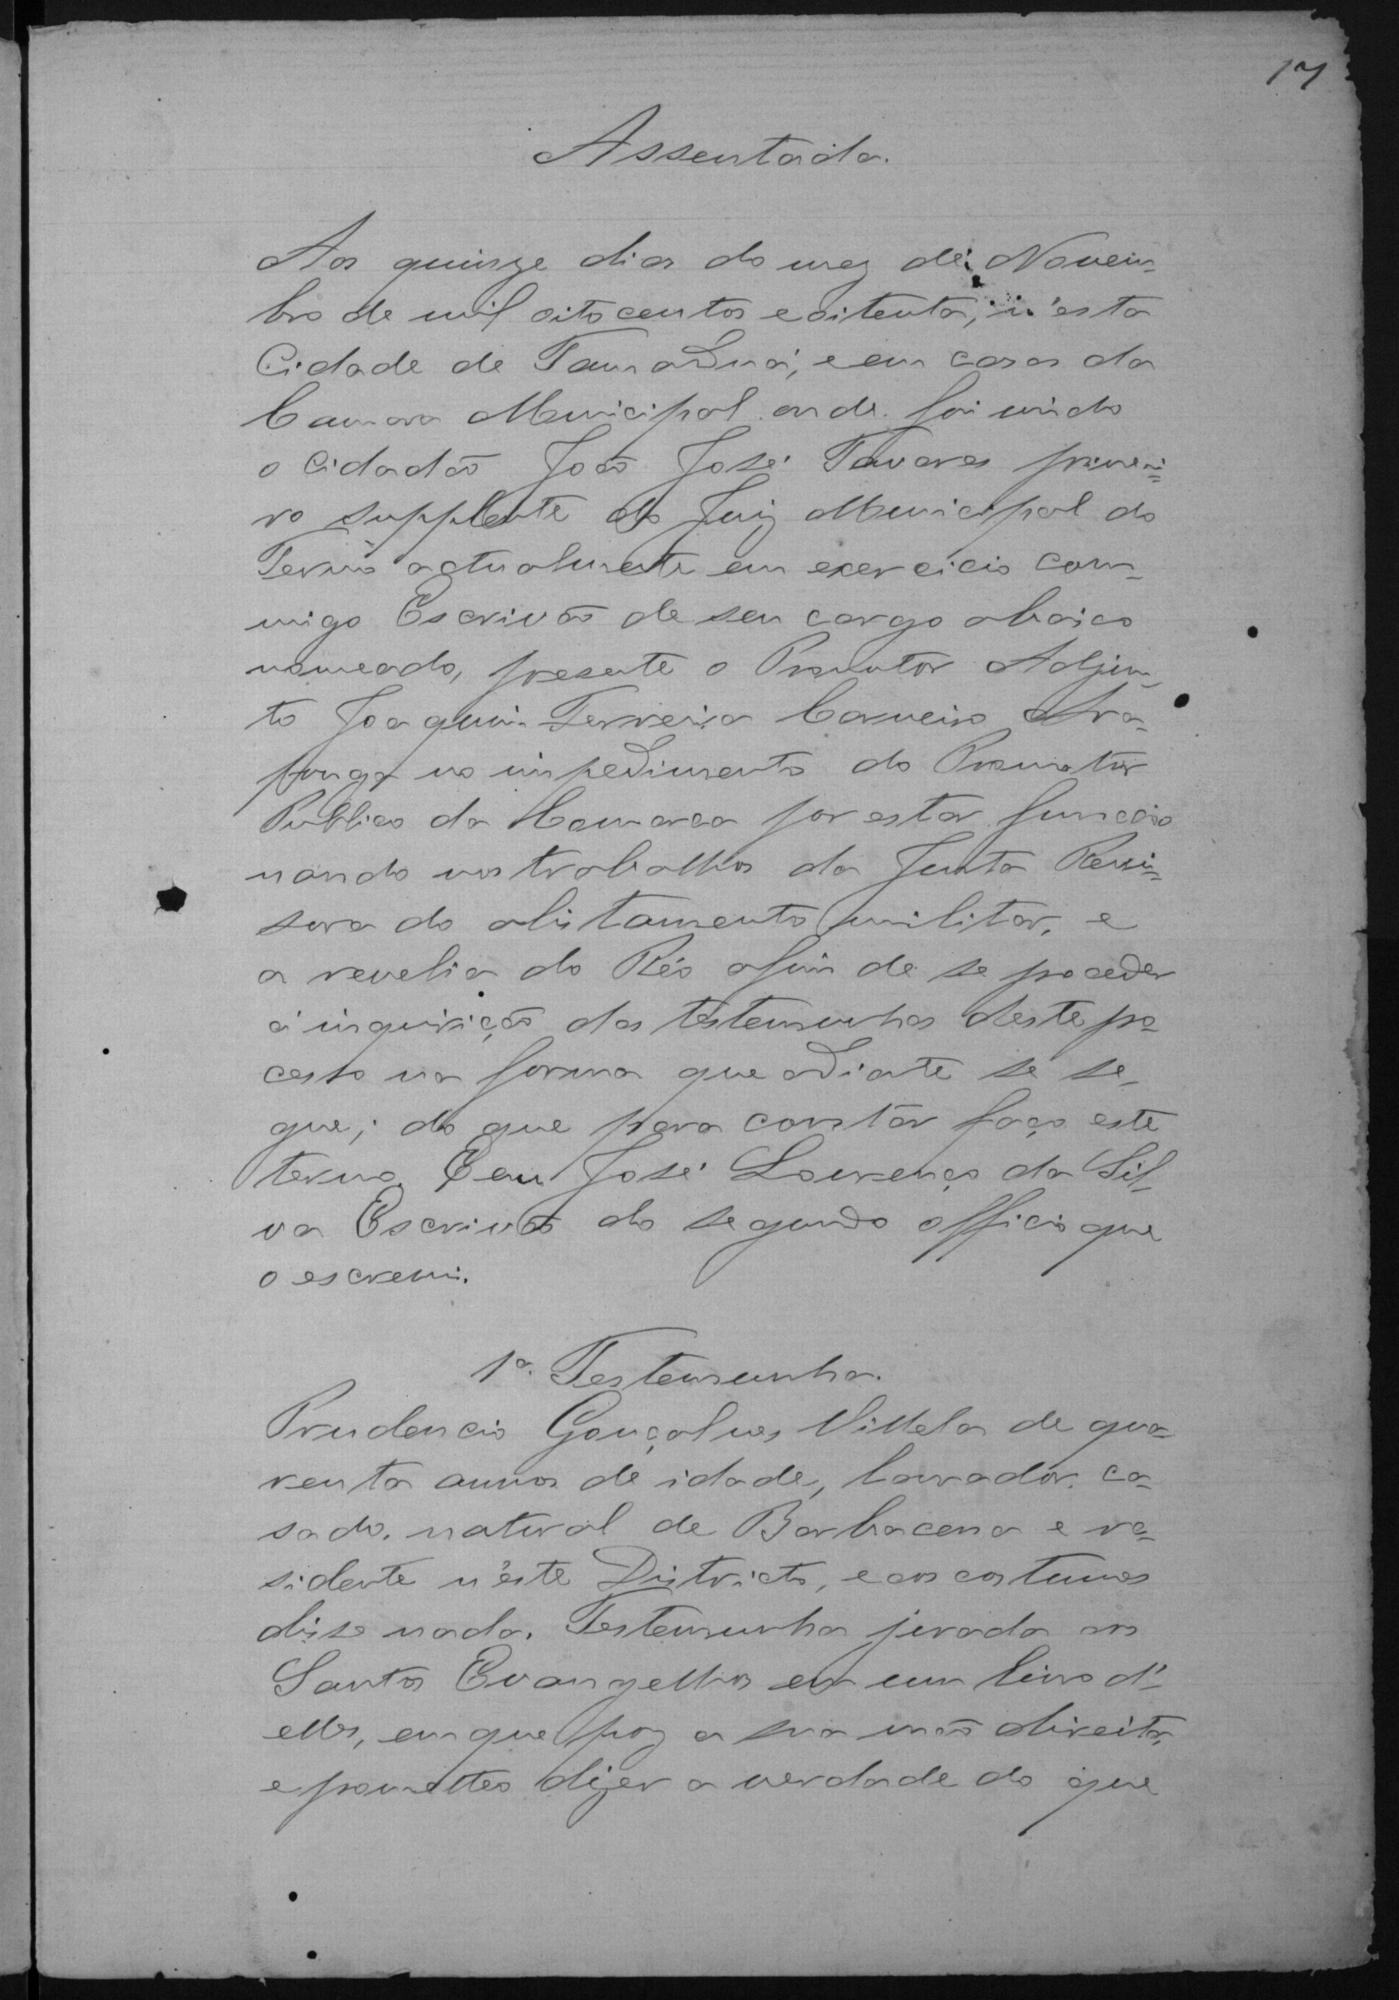 17
Assentada.
Aos quinze dias do mez de Novem-
bro de mil oitocentos e oitenta, n'esta
Cidade de Tamanduá, e em casa da
Camara Municipal onde foi vindo
o Cidadão João José Tavares primei=
ro supplente do Juiz Municipal do
Termo actualmente em exercicio com-
migo Escrivão de seu cargo abaixo
nomeado, presente o Promutor Adjun-
to Joaquim Ferreira Carneiro Ara-
ponga no impedimento do Promotor
Publico da Comarca por estar funccio
nando nos trabalhos da Junta Revi=
sora do alistamento militar, e
a revelia do Réo afim de se proceder
á inquirição das testemunhas deste pro-
cesso na forma que adiante se se-
gue; do que para constar faço este
termo. Eeu José Lourenço da Sil-
va Escrivão do segundo officio que
o escrevi.
1ª. Testemunha.
Prudencio Gonçalves Villela de qua-
renta annos de idade, lavrador, ca-
sado, natural de Barbacena e re-
sidente n'este Districto, e aos costumes
disse nada. Testemunha jurada aos
Santos Evangelhos em um livro d'-
elles, em que poz a sua mão direita,
e prometteo dizer a verdade do que